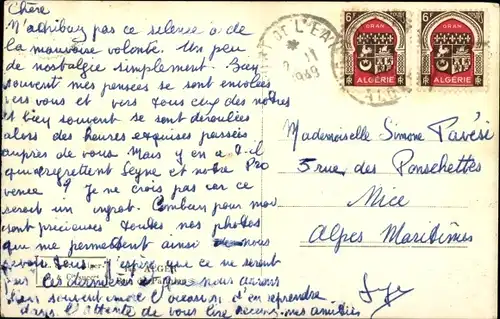 Chère
N'attribuez pas ce silence à de
la mauvaise volonté. Un peu
de nostalgie simplement. Bien
souvent mes pensées se sont envolées
vers vous et vers tous ceux des nôtres
et bien souvent se sont déroulées
alors des heures exquises passées
auprès de vous. Mais y en a-t-il
qui regrettent Seyne et notre Pro
vence ? Je ne crois pas car ce
serait un ingrat. Combien pour moi
sont précieuses toutes nos photos
qui me permettent ainsi de vous
revoir tous. J'espère que ce ne seront
pas les dernières et que nous aurons
bien souvent l'occasion d'en reprendre.
Dans l'attente de vous lire recevez mes amitiés
ALGER
Mademoiselle Simone Pavési
5 rue des Ponchettes
Nice
Alpes Maritimes
DE L'EAU
2 11
1949
6F
ORAN
ALGÉRIE
6F
ORAN
ALGÉRIE